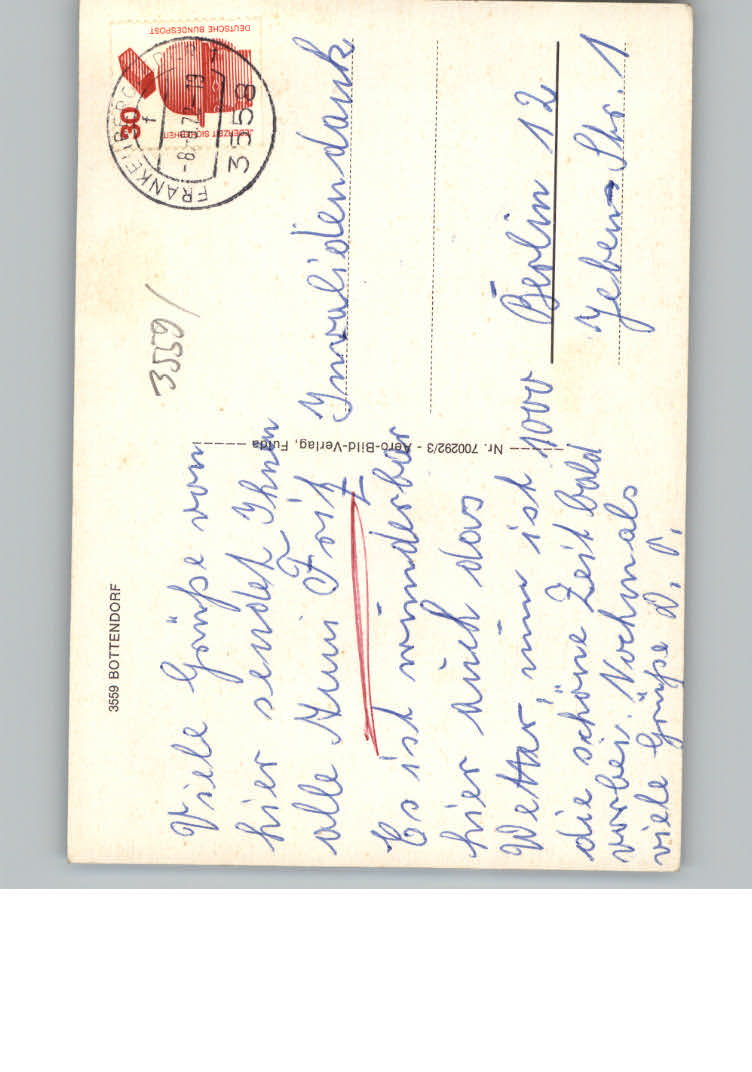 3559 BOTTENDORF
Viele Grüße von
hier sendet Ihnen
alle
Es ist wunderbar
hier auch das
Wetter, nun ist
die schöne Zeit bald
vorbei. Nochmals
viele Grüße D. O.
Nr. 700292/3 - Aero-Bild-Verlag, Fulda
3559/
DEUTSCHE BUNDESPOST
JEDERZEIT SICHERHEIT
30
FRANKENBERG
f
-8.
-19
3558
Invaliedendank
1000 Berlin 12
Jeben-Str. 1